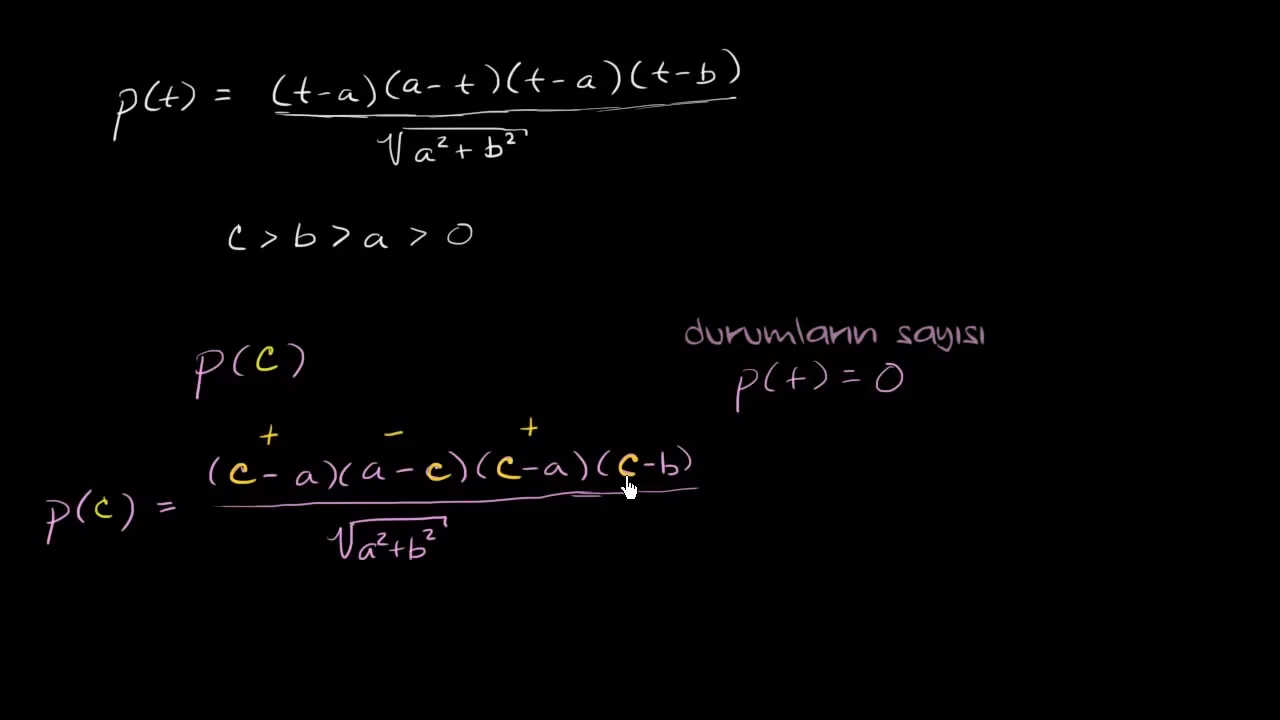 p(t) = (t-a)(a-t)(t-a)(t-b)
√a²+b²
c > b > a > 0
p(c)
durumların sayısı
p(t) = 0
+ - +
p(c) = (c-a)(a-c)(c-a)(c-b)
√a²+b²